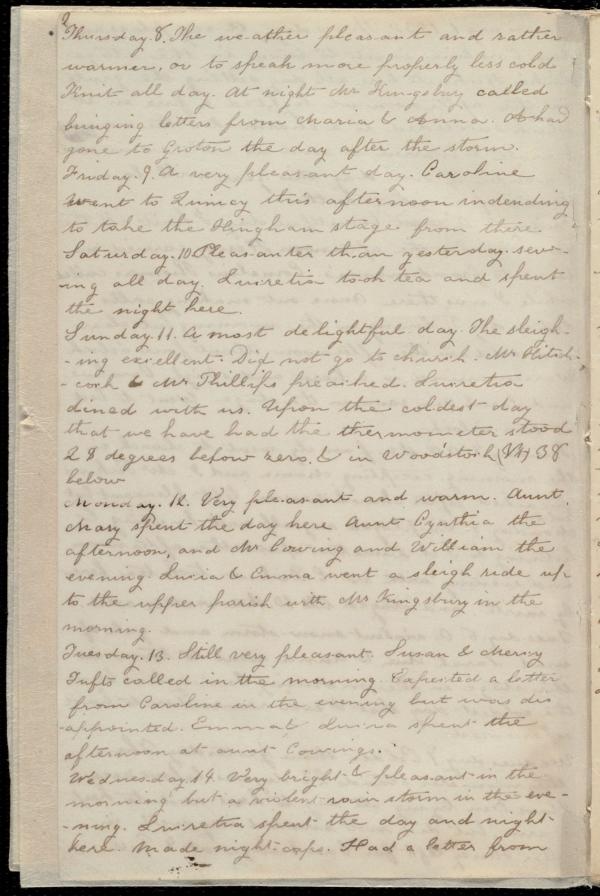 2
Thursday. 8. The weather pleasant and rather
warmer, or to speak more properly less cold
Knit all day. At night Mr Kingsbury called
bringing letters from Maria & Anna. had
gone to Groton the day after the storm.
Friday. 9. A very pleasant day. Caroline
went to Quincy this afternoon indending
to take the Hingham stage from there.
Saturday. 10 Pleasanter than yesterday. sew-
-ing all day. Lucretia took tea and spent
the night here.
Sunday. 11. A most delightful day. The sleigh-
-ing excellent. Did not go to church. Mr Hitch-
-cock & Mr Phillips preached. Lucretia
dined with us. Upon the coldest day
that we have had the thermometer stood
28 degrees below zero. & in Woodstock (Vt) 38
below
Monday. 12. Very pleasant and warm. Aunt.
Mary spent the day here Aunt Cynthia the
afternoon, and Mr Cowing and William the
evening. Lucia & Emma went a sleigh ride up
to the upper parish with Mr Kingsbury in the
morning.
Tuesday. 13. Still very pleasant. Susan & Mercy
Tufts called in the morning. Expected a letter
from Caroline in the evening but was dis
-appointed. Emma & Lucia spent the
afternoon at aunt Cowings.
Wednesday 14. Very bright & pleasant in the
morning but a violent rain storm in the eve-
-ning. Lucretia spent the day and night
here. Made night-caps. Had a letter from